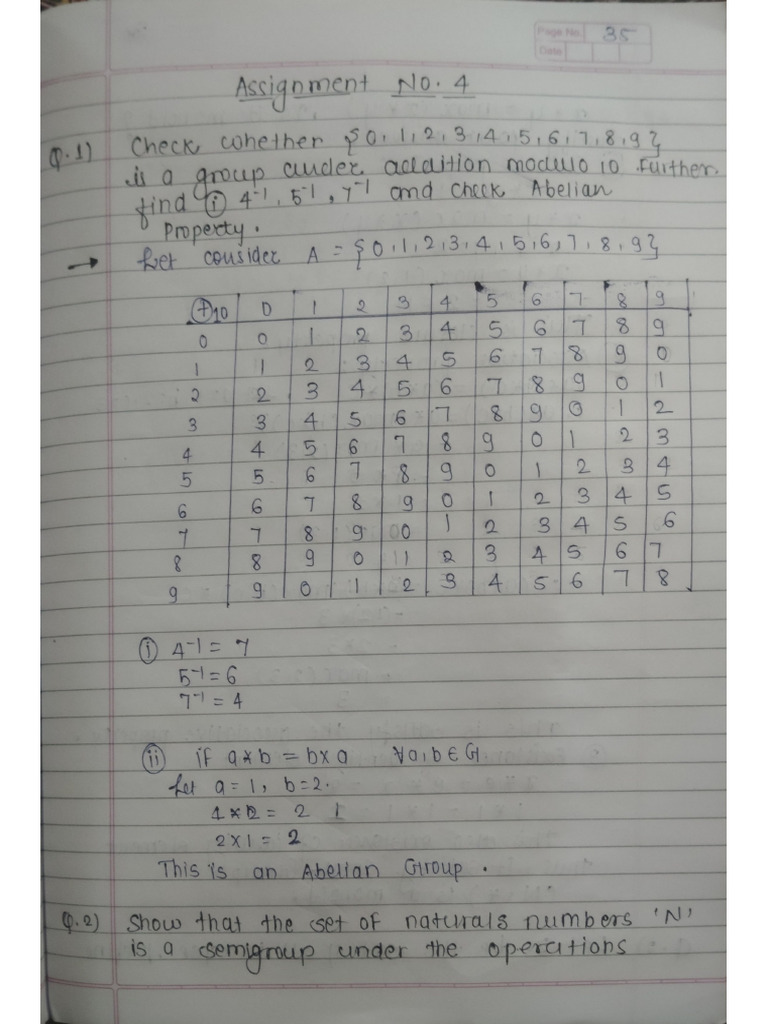 Page No. 35
Date
Assignment No. 4
Q.1) Check whether {0,1,2,3,4,5,6,7,8,9}
is a group under addition modulo 10. Further
find (i) 4⁻¹, 5⁻¹, 7⁻¹ and check Abelian
Property.
→ Let consider A = {0,1,2,3,4,5,6,7,8,9}
⊕10 0 1 2 3 4 5 6 7 8 9
0 0 1 2 3 4 5 6 7 8 9
1 1 2 3 4 5 6 7 8 9 0
2 2 3 4 5 6 7 8 9 0 1
3 3 4 5 6 7 8 9 0 1 2
4 4 5 6 7 8 9 0 1 2 3
5 5 6 7 8 9 0 1 2 3 4
6 6 7 8 9 0 1 2 3 4 5
7 7 8 9 0 1 2 3 4 5 6
8 8 9 0 1 2 3 4 5 6 7
9 9 0 1 2 3 4 5 6 7 8
(i) 4⁻¹ = 7
5⁻¹ = 6
7⁻¹ = 4
(ii) if a*b = b×a ∀a,b∈G
Let a=1, b=2.
1 × 2 = 2
2×1 = 2
This is an Abelian Group.
Q.2) Show that the set of naturals numbers 'N'
is a semigroup under the operations